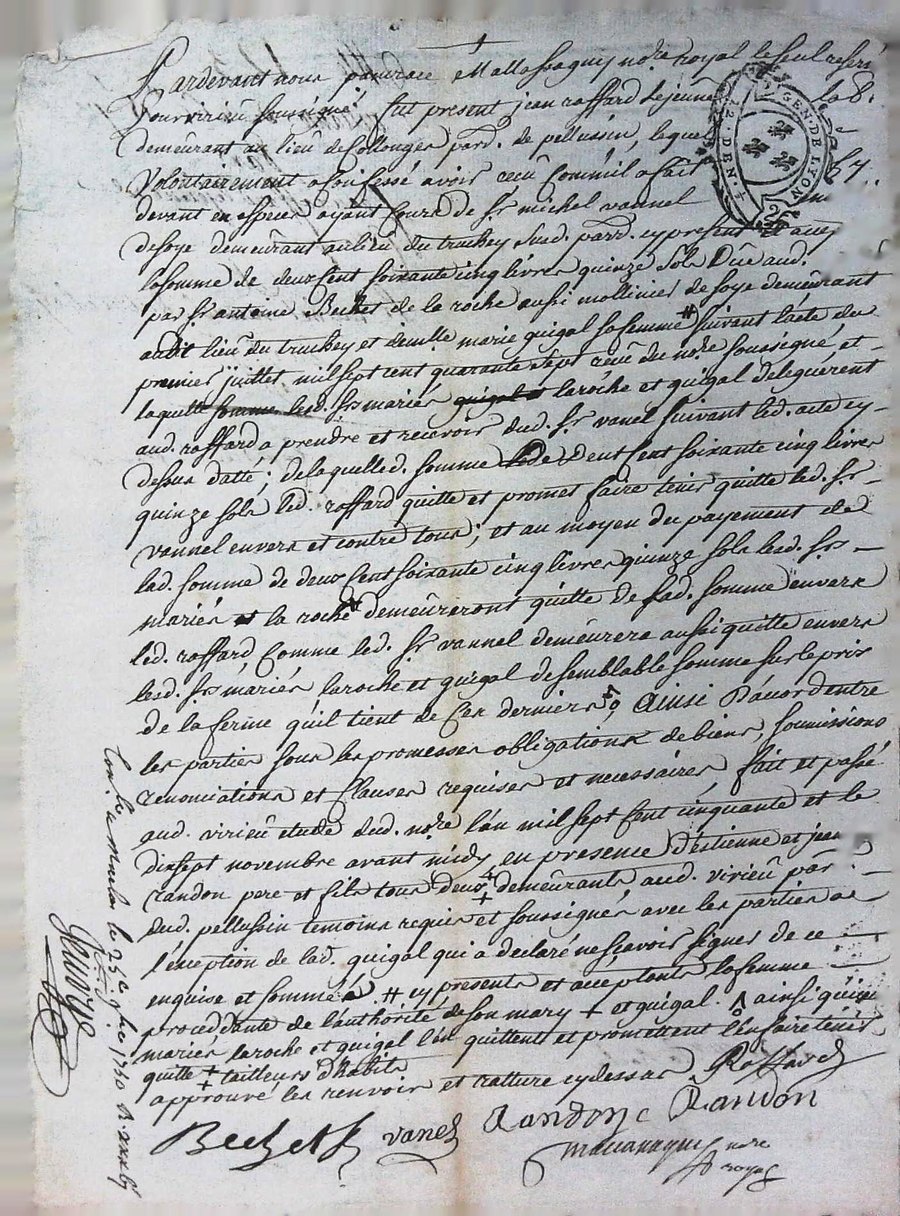 Pardevant nous pancrace no.re royal le seul reservé
Pourvirieu soussigné. fut present jean raffard le jeune
demeurant au lieu de Collonges par.d de pellussin, lequel
Volontairement a Confessé avoir recû Comm'il a fait
devant en especes ayant Cours de S.r michel vannel
de soye demeurant au lieu du truchey sud. par.d cy present et acceptant
la somme de deux Cent soixante cinq livres quinze sols Dûe aud.
par S.r antoine Bechet de la roche aussi mollinier de soye demeurant
audit lieu du truchey et dem.lle marie guigal sa femme # suivant l'acte du
premier juillet mil sept cent quarante sept recû du no.re soussigné, et
laquelle somme lesd. S.rs mariés guigal laroche et guigal deleguerent
aud. raffard a prendre et recevoir dud. S.r vanel suivant led. acte cy
dessus datté; de laquelle d. somme de Deux Cent soixante cinq livres
quinze sols led. raffard quitte et promet faire tenir quitte led. S.r
vannel envers et contre tous; et au moyen du payement de
lad. somme de deux Cent soixante cinq livres quinze sols lesd. S.rs
mariés et la roche demeureront quitte de lad. somme envers
led. raffard, Comme led. S.r vannel demeurera aussi quitte envers
lesd. S.rs mariés laroche et guigal de semblable somme sur le prix
de la ferme qu'il tient de Ces derniers, Ainsi D'acord entre
les parties sous les promesses obligations de biens, soumissions
renonciations et Clauses requises et necessaires fait et passé
aud. virieu etude dud. no.re l'an mil sept Cent cinquante et le
dixsept novembre avant midy, en presence d'étienne et jean
Randon pere et fils tous deux + demeurants aud. virieu par.
dud. pellussin temoins requis et soussignés avec les parties a
l'exception de lad. guigal qui a declaré ne sçavoir signer de ce
enquise et sommée. # cy presents et acceptants la femme
procedante de l'authorité de son mary + et guigal. ainsi que
mariés laroche et guigal l'en quittent et promettent l'en faire tenir
quitte + tailleurs d'habits
approuvé les renvois et ratture cy dessus Raffard
Bechet vanel Randon Randon
no.re
royal
GEN. DE LYON
2 DEN.
le 25e 1750